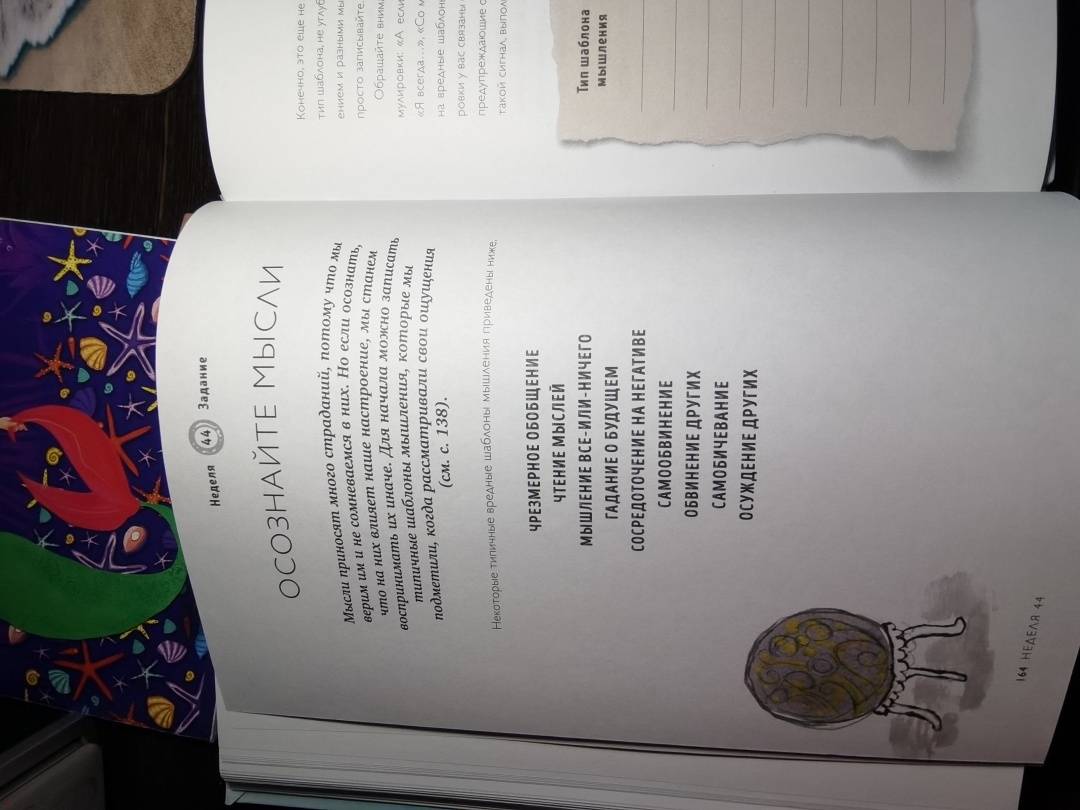 Неделя 44 Задание
ОСОЗНАЙТЕ МЫСЛИ
Мысли приносят много страданий, потому что мы
верим им и не сомневаемся в них. Но если осознать,
что на них влияет наше настроение, мы станем
воспринимать их иначе. Для начала можно записать
типичные шаблоны мышления, которые мы
подметили, когда рассматривали свои ощущения
(см. с. 138).
Некоторые типичные вредные шаблоны мышления приведены ниже.
ЧРЕЗМЕРНОЕ ОБОБЩЕНИЕ
ЧТЕНИЕ МЫСЛЕЙ
МЫШЛЕНИЕ ВСЕ-ИЛИ-НИЧЕГО
ГАДАНИЕ О БУДУЩЕМ
СОСРЕДОТОЧЕНИЕ НА НЕГАТИВЕ
САМООБВИНЕНИЕ
ОБВИНЕНИЕ ДРУГИХ
САМОБИЧЕВАНИЕ
ОСУЖДЕНИЕ ДРУГИХ
164 НЕДЕЛЯ 44
Конечно, это еще не
тип шаблона, не углуб
ением и разными мы
просто записывайте.
Обращайте вним
мулировки: «А если
«Я всегда…», «Со м
на вредные шаблон
ровки у вас связаны
предупреждающие с
такой сигнал, выпол
Тип шаблона
мышления